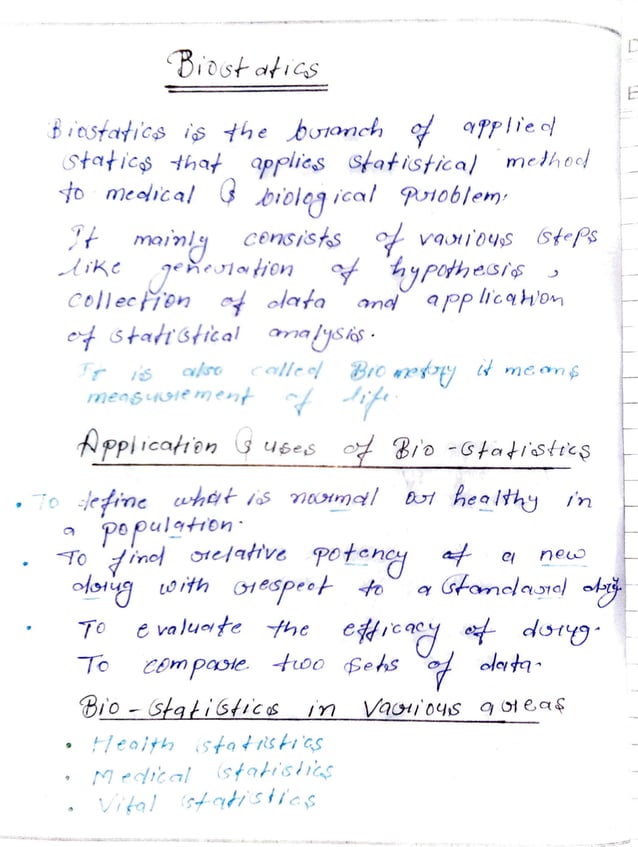 Biostatics
Biostatics is the branch of applied
statics that applies statistical method
to medical & biological problem.
It mainly consists of various steps
like generation of hypothesis,
collection of data and application
of statistical analysis.
It is also called Biometry it means
measurement of life.
Application & uses of Bio-statistics
• To define what is normal or healthy in
a population.
• To find relative potency of a new
drug with respect to a standard drug.
• To evaluate the efficacy of drug.
To compare two sets of data.
Bio-statistics in various areas
• Health statistics
• Medical statistics
• Vital statistics